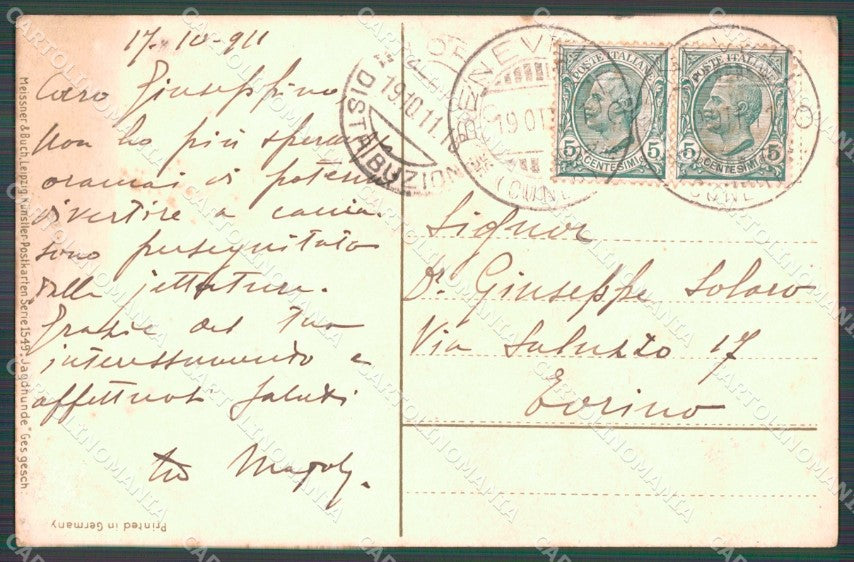 17-10-911
Caro Giuseppino,
Non ho più speranza
oramai di poter
divertire a caccia.
sono perseguitato
dalla jettatura.
Grazie del tuo
interessamento e
affettuosi saluti
tuo
Signor
Dr. Giuseppe Solaro
Via Saluzzo 17
Torino
19.10.11
DISTRIBUZION
BENEVE
19 OT
(CUNE
POSTE ITALIANE
5 CENTESIMI 5
POSTE ITALIANE
5 CENTESIMI 5
CUNE
Meissner & Buch, Leipzig. Künstler-Postkarten Serie 1549. "Jagdhunde" Ges. gesch.
Printed in Germany
CARTOLINOMANIA